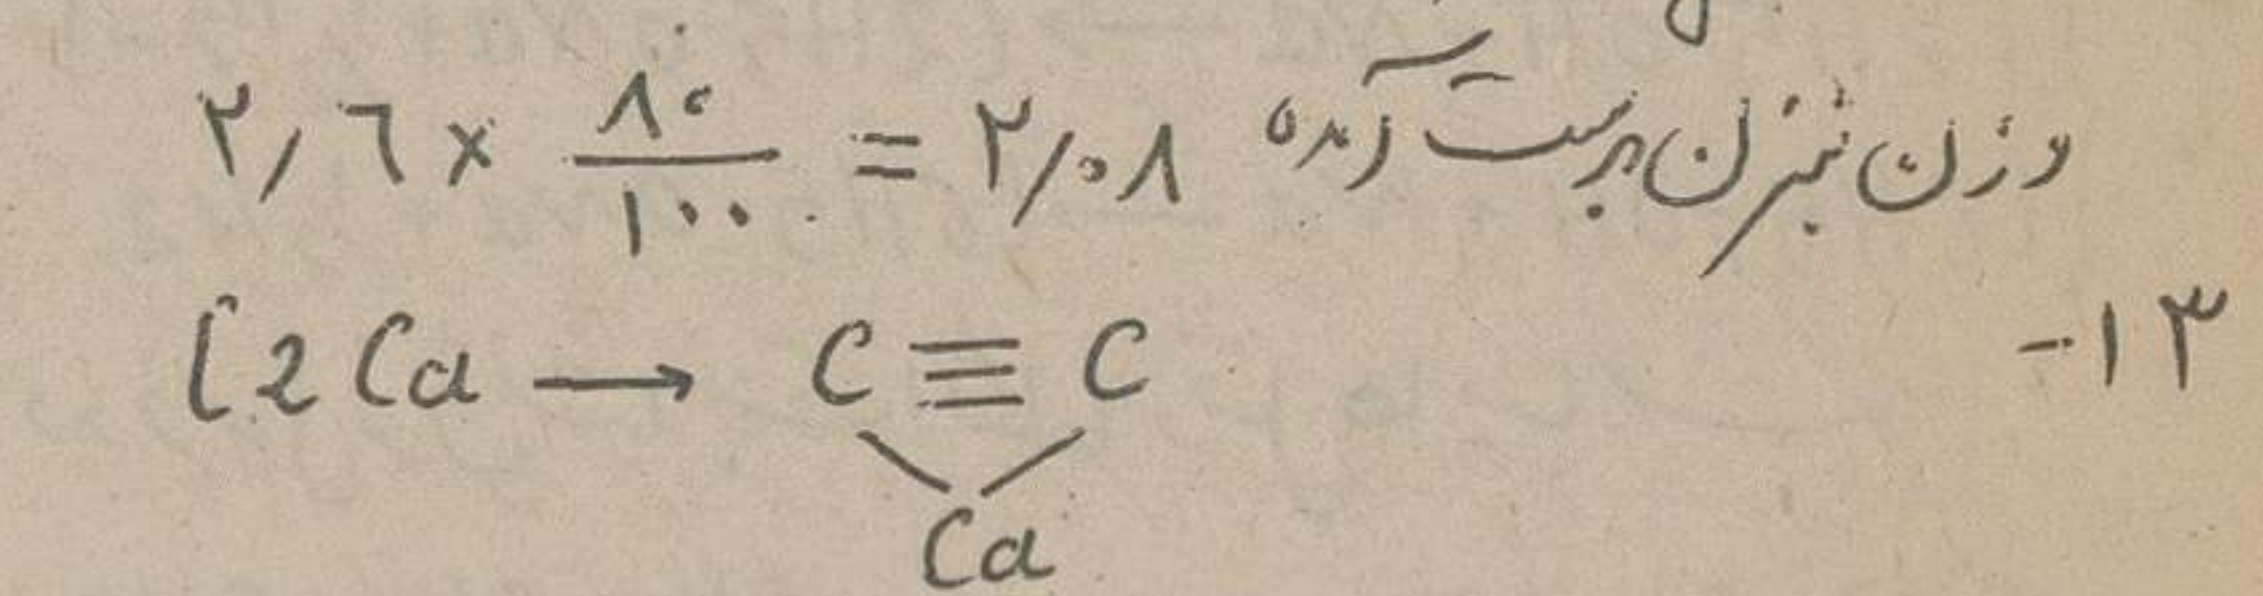 وزن بنزن بدست آمده ۲٫۶ × ۸۰/۱۰۰ = ۲٫۰۸
۱۳- C2Ca → C ≡ C
Ca